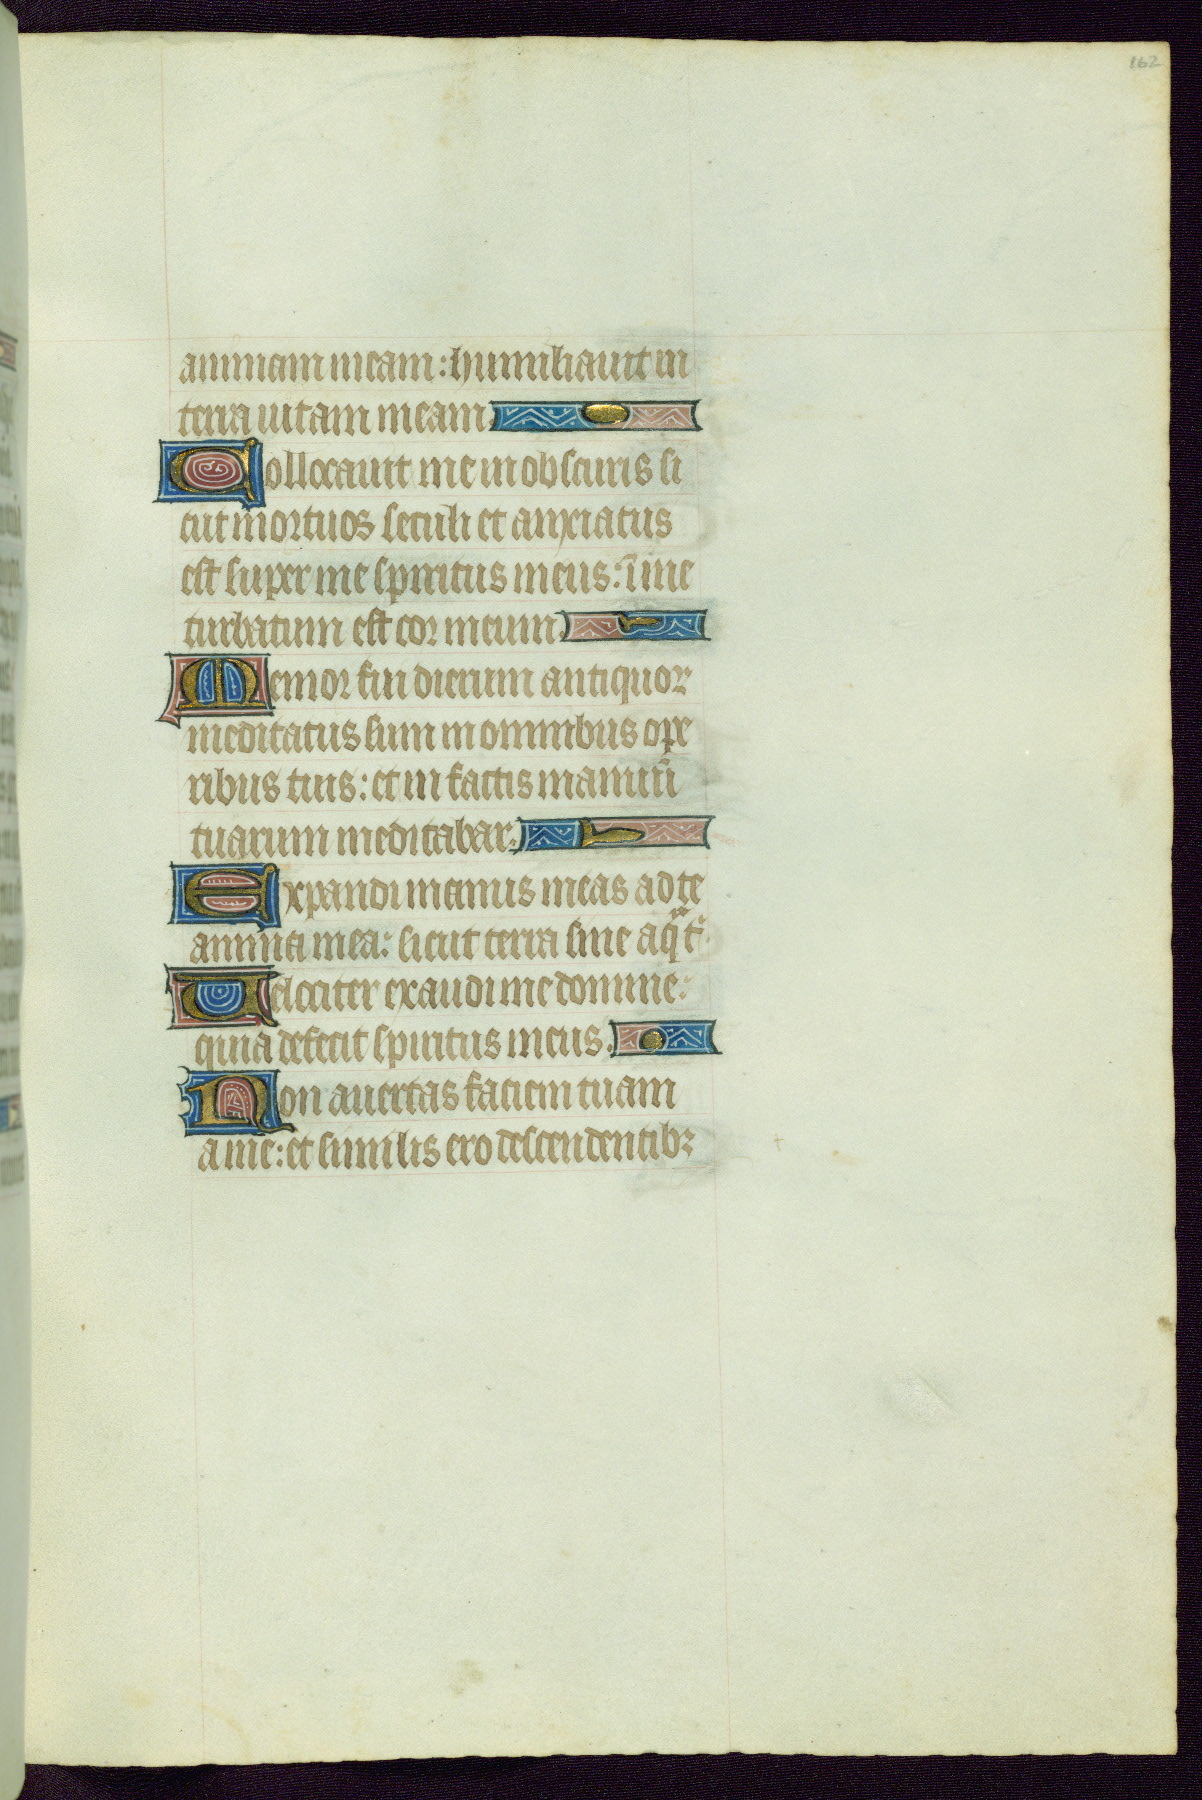 162
animam meam: humiliauit in
terra uitam meam.
Collocauit me in obscuris si
cut mortuos seculi et anxiatus
est super me spiritus meus: ī me
turbatum est cor meum.
Memor fui dierum antiquoꝝ
meditatus sum in omnibus ope
ribus tuis: et in factis manuū
tuarum meditabar.
Expandi manus meas ad te
anima mea: sicut terra sine aqͣ tͥ.
Velociter exaudi me domine:
quia defecit spiritus meus.
Non auertas faciem tuam
a me: et similis ero descendentibꝫ